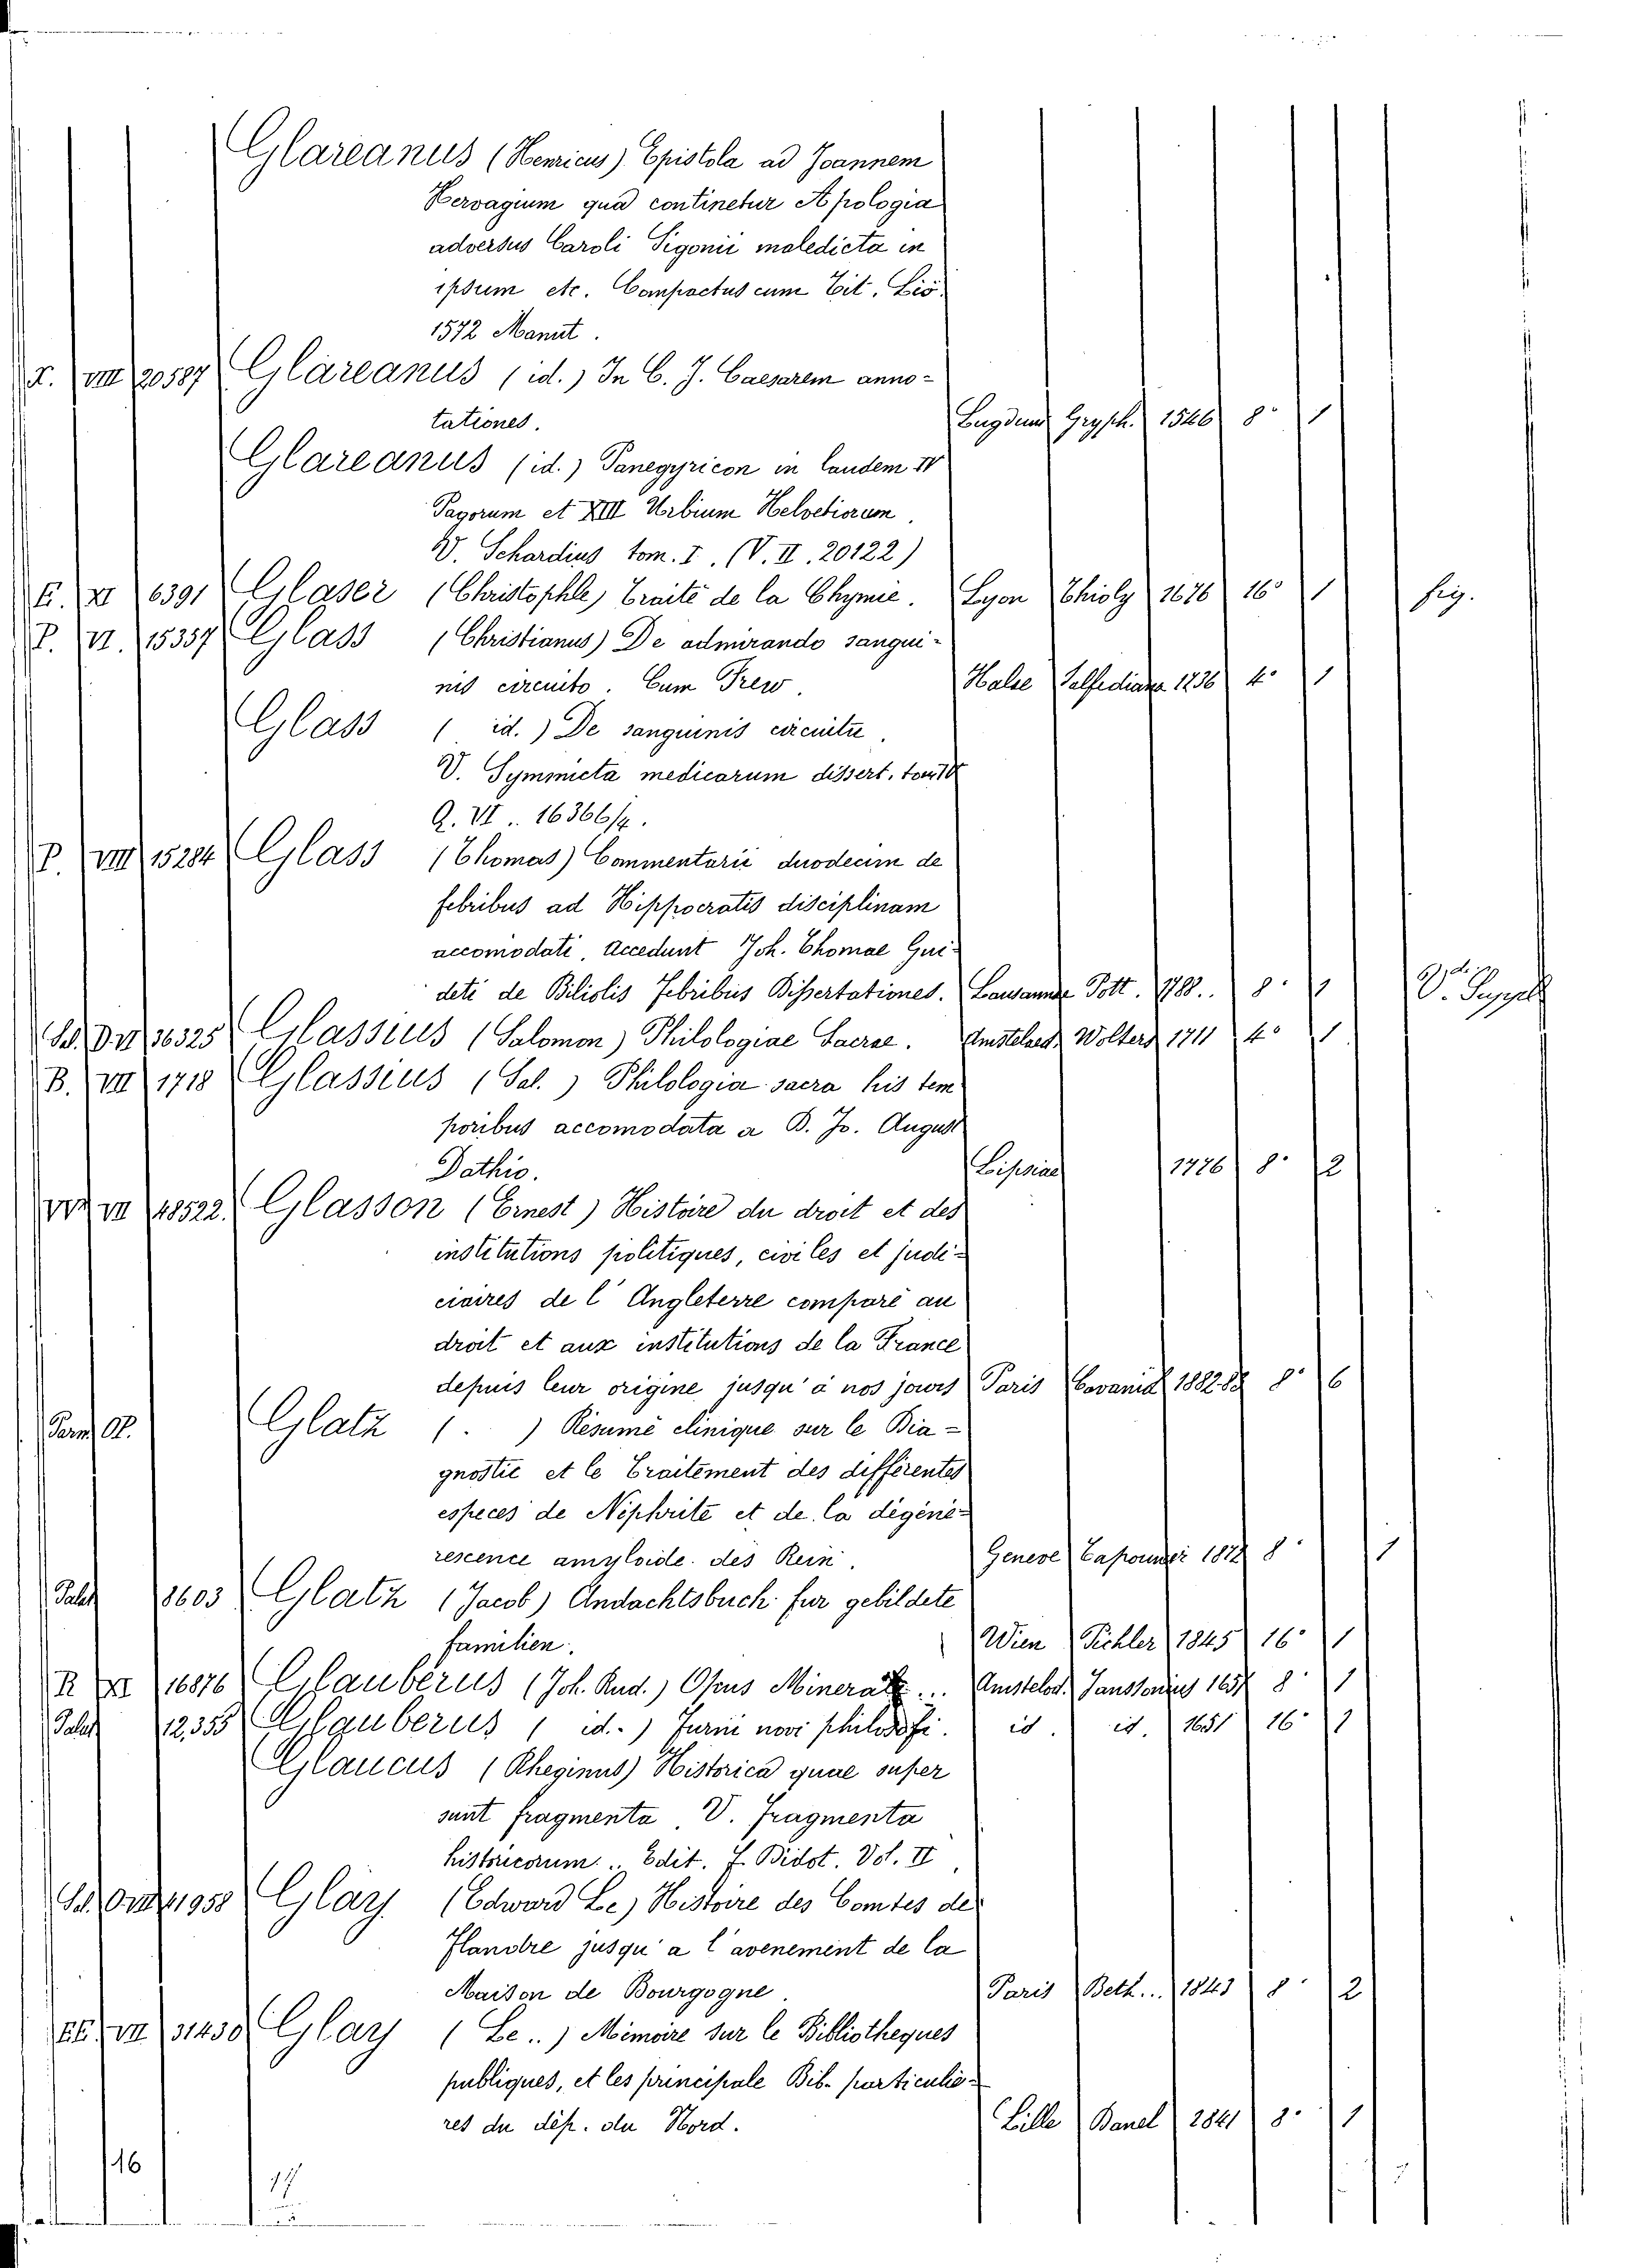 Glareanus (Henricus) Epistola ad Joannem
Hervagium qua continetur Apologia
adversus Caroli Sigonii maledicta in
ipsum etc. Compactus cum Tit. Liv.
1572 Manut.
X. VIII 20587 Glareanus (id.) In C. J. Caesarem anno-
tationes. Lugduni Gryph. 1546 8° 1
Glareanus (id.) Panegyricon in laudem IV
Pagorum et XIII Urbium Helvetiorum.
V. Schardius tom. I. (V. II. 20122)
E. XI 6391 Glaser (Christophle) Traité de la Chymie. Lyon Thioly 1676 16° 1 fig.
P. VI. 15357 Glass (Christianus) De admirando sangui-
nis circuito. Cum Trew. Halae Salfediana 1736 4° 1
Glass (id.) De sanguinis circuitu.
V. Symmicta medicarum dissert. tom
Q. VI.. 16366/4.
P. VIII 15284 Glass (Thomas) Commentarii duodecim de
febribus ad Hippocratis disciplinam
accomodati, accedunt Joh. Thomae Gui-
deti de Biliolis Febribus Dissertationes. Lausannae Pott. 1788.. 8° 1
36325 Glassius (Salomon) Philologiae Sacrae. Amstelaed. Wolters 1711 4° 1
B. VII 1718 Glassius (Sal.) Philologia sacra his tem
poribus accomodata a D. Jo. August
Dathio. Lipsiae 1776 8° 2
VII 48522. Glasson (Ernest) Histoire du droit et des
institutions politiques, civiles et judi-
ciaires de l'Angleterre comparé au
droit et aux institutions de la France
depuis leur origine jusqu'à nos jours Paris 1882.83 8° 6
Glatz (. ) Résumé clinique sur le Dia-
gnostic et le Traitement des différentes
especes de Néphrite et de la dégéné-
rescence amyloide des Rein. Geneve 8° 1
Palat 8603 Glatz (Jacob) Andachtsbuch fur gebildete
familien. Wien Pichler 1845 16° 1
R XI 16876 Glauberus (Joh. Rud.) Opus Mineral... Amstelod. Janssonius 8° 1
Palat 12,355 Glauberus (id.) Furni novi philosofi. id. id. 1651 16° 1
Glaucus (Rheginus) Historica quae super
sunt fragmenta V. fragmenta
historicorum.. Edit. F. Didot. Vol. II
Glay (Edward Le) Histoire des Comtes de
Flandre jusqu'a l'avenement de la
Maison de Bourgogne. Paris Beth... 1843 8° 2
VII 31430 Glay (Le..) Mémoire sur le Bibliotheques
publiques, et les principale Bib. particulie-
res du dép. du Nord. Lille Danel 1841 8° 1
16
17